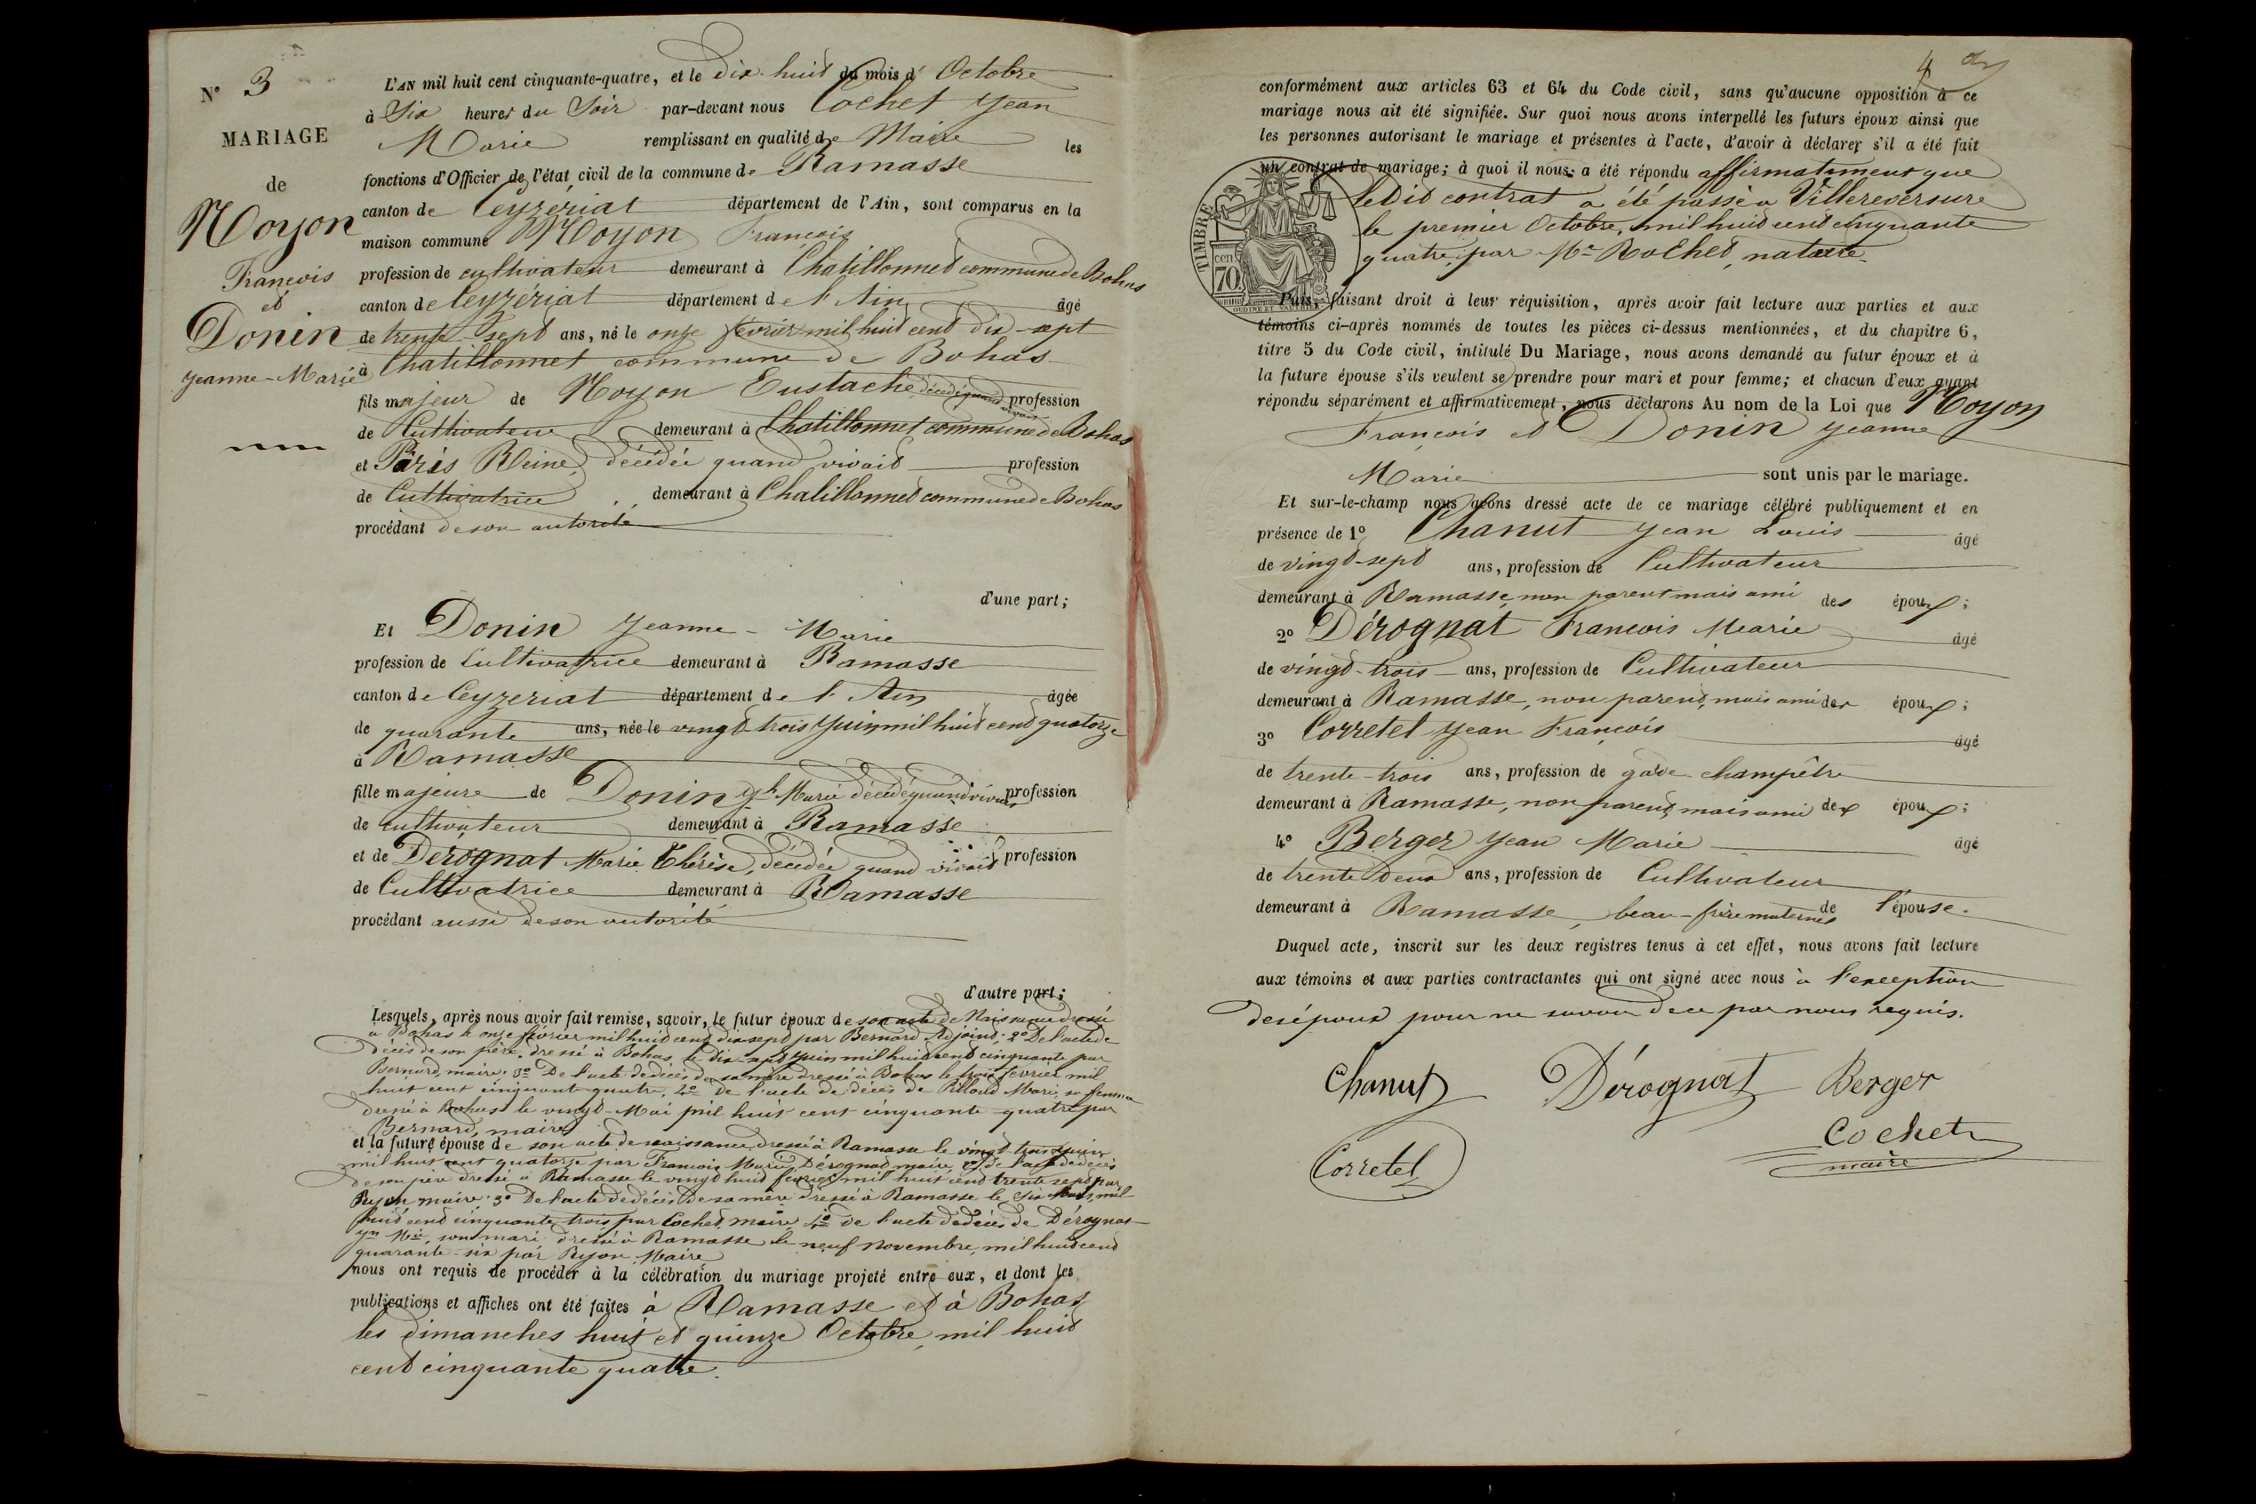 N° 3
MARIAGE
de
Moyon
François
et
Donin
Jeanne-Marie
L'AN mil huit cent cinquante-quatre, et le dix huit du mois d'Octobre
à Six heures du Soir par-devant nous Cochet Jean
Marie remplissant en qualité de Maire les
fonctions d'Officier de l'état civil de la commune de Ramasse
canton de Ceyzeriat département de l'Ain, sont comparus en la
maison commune Moyon François
profession de cultivateur demeurant à Chatillonnet commune de Bohas
canton de Ceyzériat département de l'Ain âgé
de trente-sept ans, né le onze février mil huit cent dix-sept
à Chatillonnet commune de Bohas
fils majeur de Moyon Eustache décédé quand vivait profession
de Cultivateur demeurant à Chatillonnet commune de Bohas
et Paris Reine décédée quand vivait profession
de Cultivatrice demeurant à Chatillonnet commune de Bohas
procédant de son autorité
d'une part;
Et Donin Jeanne-Marie
profession de Cultivatrice demeurant à Ramasse
canton de Ceyzeriat département de l'Ain âgée
de quarante ans, née le vingt trois Juin mil huit cent quatorze
à Ramasse
fille majeure de Donin Jh Marie décédé quand vivait profession
de cultivateur demeurant à Ramasse
et de Dérognat Marie Thérèse, décédée quand vivait profession
de Cultivatrice demeurant à Ramasse
procédant aussi de son autorité
d'autre part;
Lesquels, après nous avoir fait remise, savoir, le futur époux de son acte de Naissance dressé
à Bohas le onze février mil huit cent dix sept par Bernard Adjoint; 2° De l'acte de
décès de son père, dressé à Bohas le dix-sept Juin mil huit cent cinquante par
Bernard, maire; 3° De l'acte de décès de sa mère dressé à Bohas le trois février mil
huit cent cinquante quatre, 4° De l'acte de décès de Marie, sa femme
dressé à Bohas le vingt-Mai mil huit cent cinquante-quatre par
Bernard, maire
et la future épouse de son acte de naissance dressé à Ramasse le vingt-trois Juin
mil huit cent quatorze par François Marie Dérognat maire, 2° de l'acte de décès
de son père dressé à Ramasse le vingt huit février mil huit cent trente sept par
Buyon maire; 3° De l'acte de décès de sa mère dressé à Ramasse le six mil
huit cent cinquante-trois par Cochet, maire, 4° de l'acte de décès de Dérognat
son mari dressé à Ramasse le neuf Novembre, mil huit cent
quarante-six par Buyon Maire
nous ont requis de procéder à la célébration du mariage projeté entre eux, et dont les
publications et affiches ont été faites à Ramasse et à Bohas
les dimanches huit et quinze Octobre, mil huit
cent cinquante quatre.
4
conformément aux articles 63 et 64 du Code civil, sans qu'aucune opposition à ce
mariage nous ait été signifiée. Sur quoi nous avons interpellé les futurs époux ainsi que
les personnes autorisant le mariage et présentes à l'acte, d'avoir à déclarer s'il a été fait
un contrat de mariage; à quoi il nous a été répondu affirmativement que
ledit contrat a été passé à Villereversure
le premier Octobre, mil huit cent cinquante
quatre, par Me Rochet, notaire.
TIMBRE
cen
70
OUDINÉ
Puis, faisant droit à leur réquisition, après avoir fait lecture aux parties et aux
témoins ci-après nommés de toutes les pièces ci-dessus mentionnées, et du chapitre 6,
titre 5 du Code civil, intitulé Du Mariage, nous avons demandé au futur époux et à
la future épouse s'ils veulent se prendre pour mari et pour femme; et chacun d'eux ayant
répondu séparément et affirmativement, nous déclarons Au nom de la Loi que Moyon
François et Donin Jeanne
Marie sont unis par le mariage.
Et sur-le-champ nous avons dressé acte de ce mariage célébré publiquement et en
présence de 1° Chanut Jean Louis âgé
de vingt-sept ans, profession de Cultivateur
demeurant à Ramasse, non parent mais ami des époux;
2° Dérognat François Marie âgé
de vingt-trois ans, profession de Cultivateur
demeurant à Ramasse, non parent, mais ami des époux;
3° Corretel Jean François âgé
de trente-trois ans, profession de garde champêtre
demeurant à Ramasse, non parent, mais ami des époux;
4° Berger Jean Marie âgé
de trente deux ans, profession de Cultivateur
demeurant à Ramasse, beau-frère maternel de l'épouse.
Duquel acte, inscrit sur les deux registres tenus à cet effet, nous avons fait lecture
aux témoins et aux parties contractantes qui ont signé avec nous à l'exception
des époux pour ne savoir de ce par nous requis.
Chanut Dérognat Berger
Corretel Cochet
maire